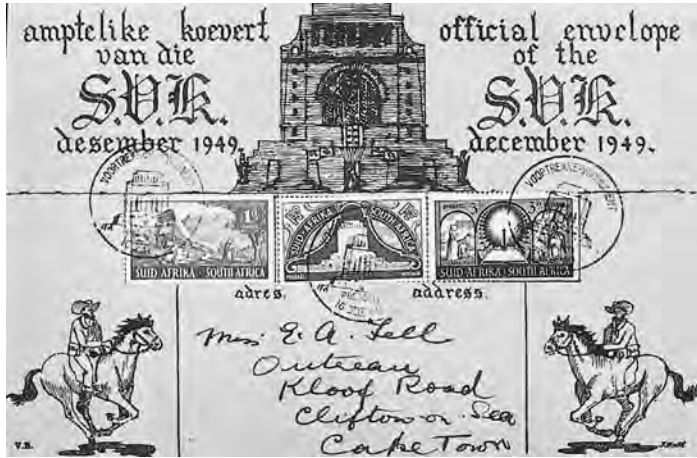 amptelike koevert
van die
S.V.K.
desember 1949.
official envelope
of the
S.V.K.
december 1949.
VOORTREKKERMONUMENT
VOORTREKKERMONUMENT
SUID AFRIKA · SOUTH AFRICA
SUID-AFRIKA SOUTH AFRICA
SUID AFRIKA · SOUTH AFRICA
adres.
address.
Miss E. A. Fell
Kloof Road
Clifton on Sea
Cape Town
V.B.